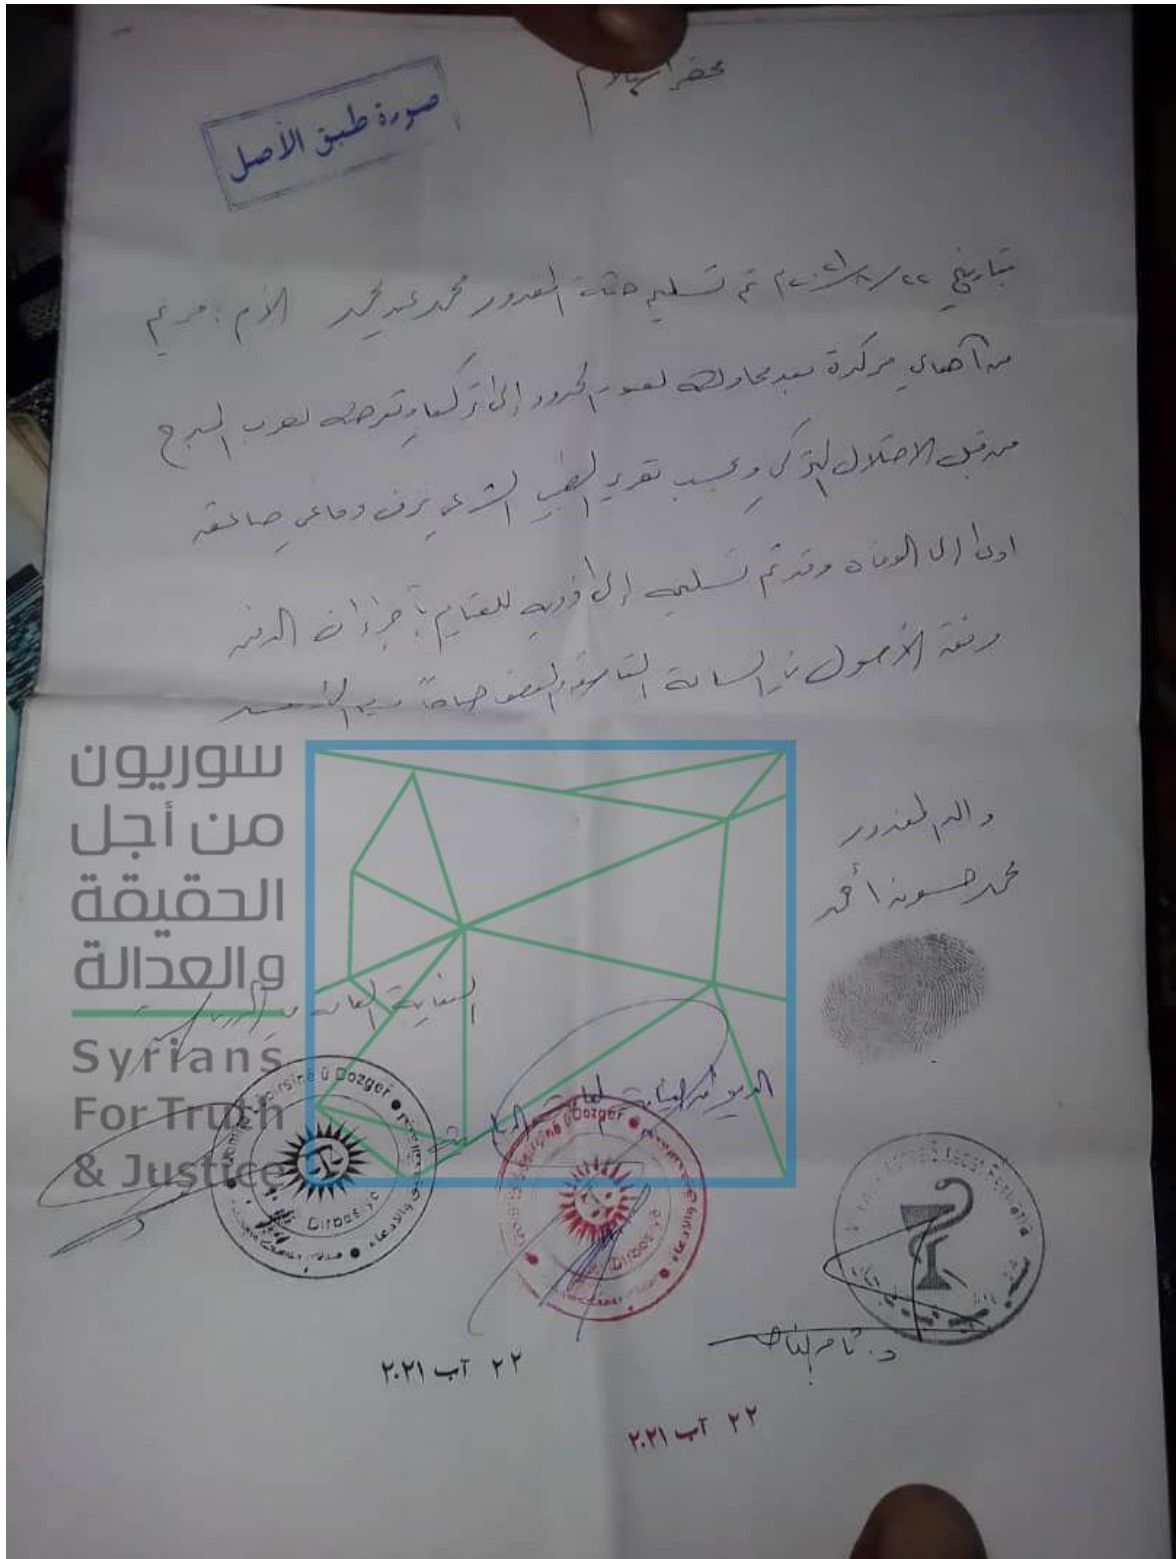 محضر استلام
صورة طبق الأصل
بتاريخ ٢٢/٨/٢٠٢١م تم تسليم جثة المغدور محمد الأم: مريم
من أهالي مركدة بعد محاولته لعبور الحدود إلى تركيا وتعرضه لضرب المبرح
من قبل الاحتلال التركي وبحسب تقرير الطبيب الشرعي نزف دماغي صاعق
ادى إلى الوفاة وقد تم تسليمه إلى ذويه للقيام بأجراءات الدفن
وفق الأصول في الساعة التاسعة والنصف صباحاً
سوريون
من أجل
الحقيقة
والعدالة
Syrians
For Truth
& Justice
والد المغدور
محمد حسون أحمد
النيابة العامة في الدرباسية
الديوان النيابة العامة
Dozger
Dirbesiye
Dozger
Dirbesiye
د. ثامر
٢٢ آب ٢٠٢١
٢٢ آب ٢٠٢١